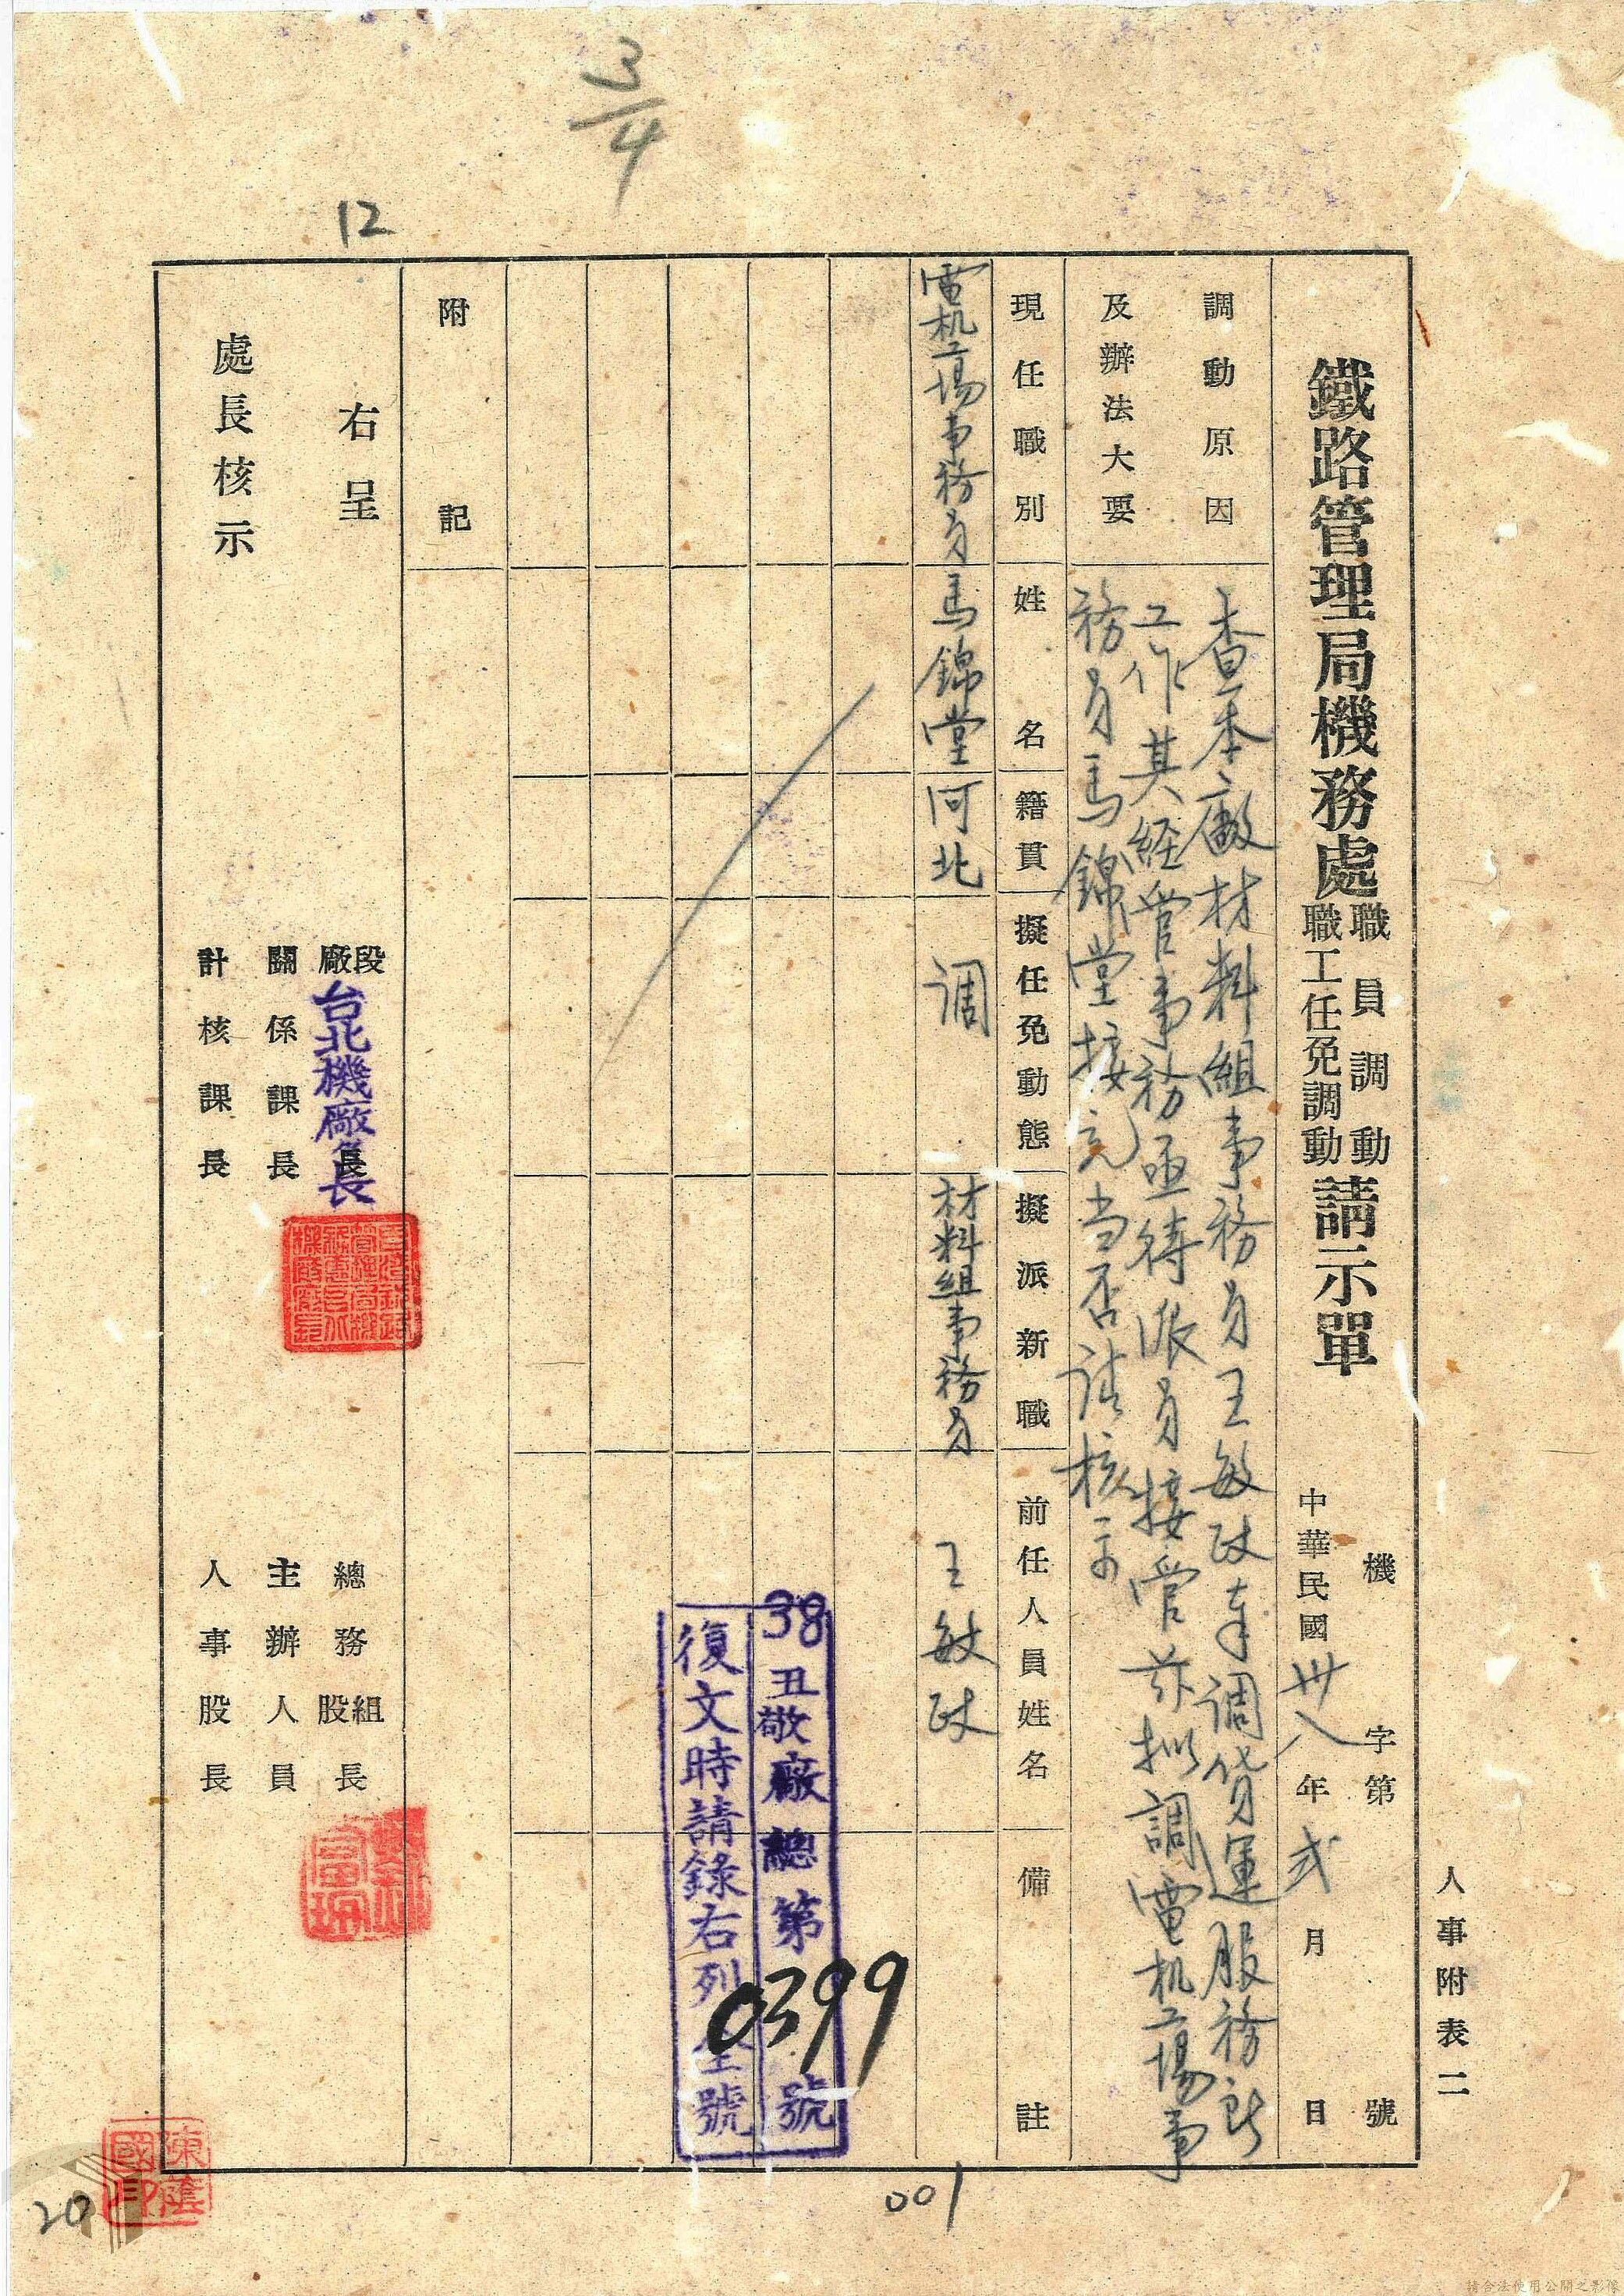 3/4
12
人事附表二
機 字第 號
中華民國卅八年弍月 日
鐵路管理局機務處職員調動職工任免調動請示單
調動原因
及辦法大要
查本廠材料組事務員王敏政奉调货運服務所
工作其経管事務亟待派員接管茲拟調電机工場事
務員馬錦堂接充当否请核示
現任職別
姓名
籍貫
擬任免動態
擬派新職
前任人員姓名
備註
電机工場事務員
馬錦堂
河北
调
材料組事務員
王敏政
38丑敬廠總第0399號
復文時請錄右列 號
附記
右呈
處長核示
段廠長
台北機廠長
關係課長
計核課長
總務組股長
主辦人員
人事股長
陳蔭國印
001
20
請合法使用公開之影像